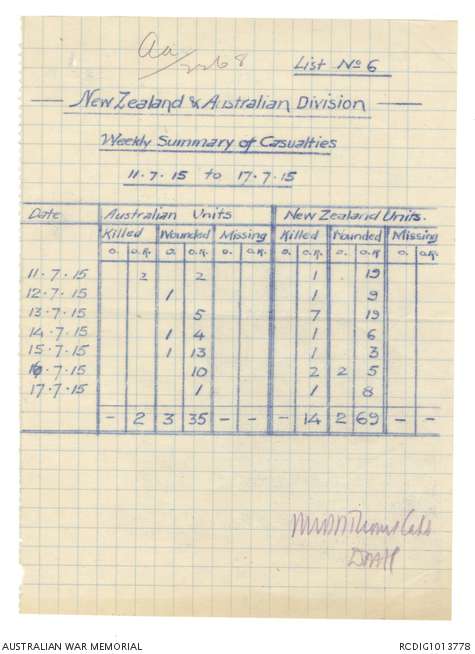 List No 6
New Zealand & Australian Division
Weekly Summary of Casualties
11.7.15 to 17.7.15
Date Australian Units New Zealand Units.
Killed Wounded Missing Killed Wounded Missing
O. O.R. O. O.R. O. O.R. O. O.R. O. O.R. O. O.R.
11.7.15 2 2 1 19
12.7.15 1 1 9
13.7.15 5 7 19
14.7.15 1 4 1 6
15.7.15 1 13 1 3
16.7.15 10 2 2 5
17.7.15 1 1 8
- 2 3 35 - - - 14 2 69 - -
AUSTRALIAN WAR MEMORIAL
RCDIG1013778